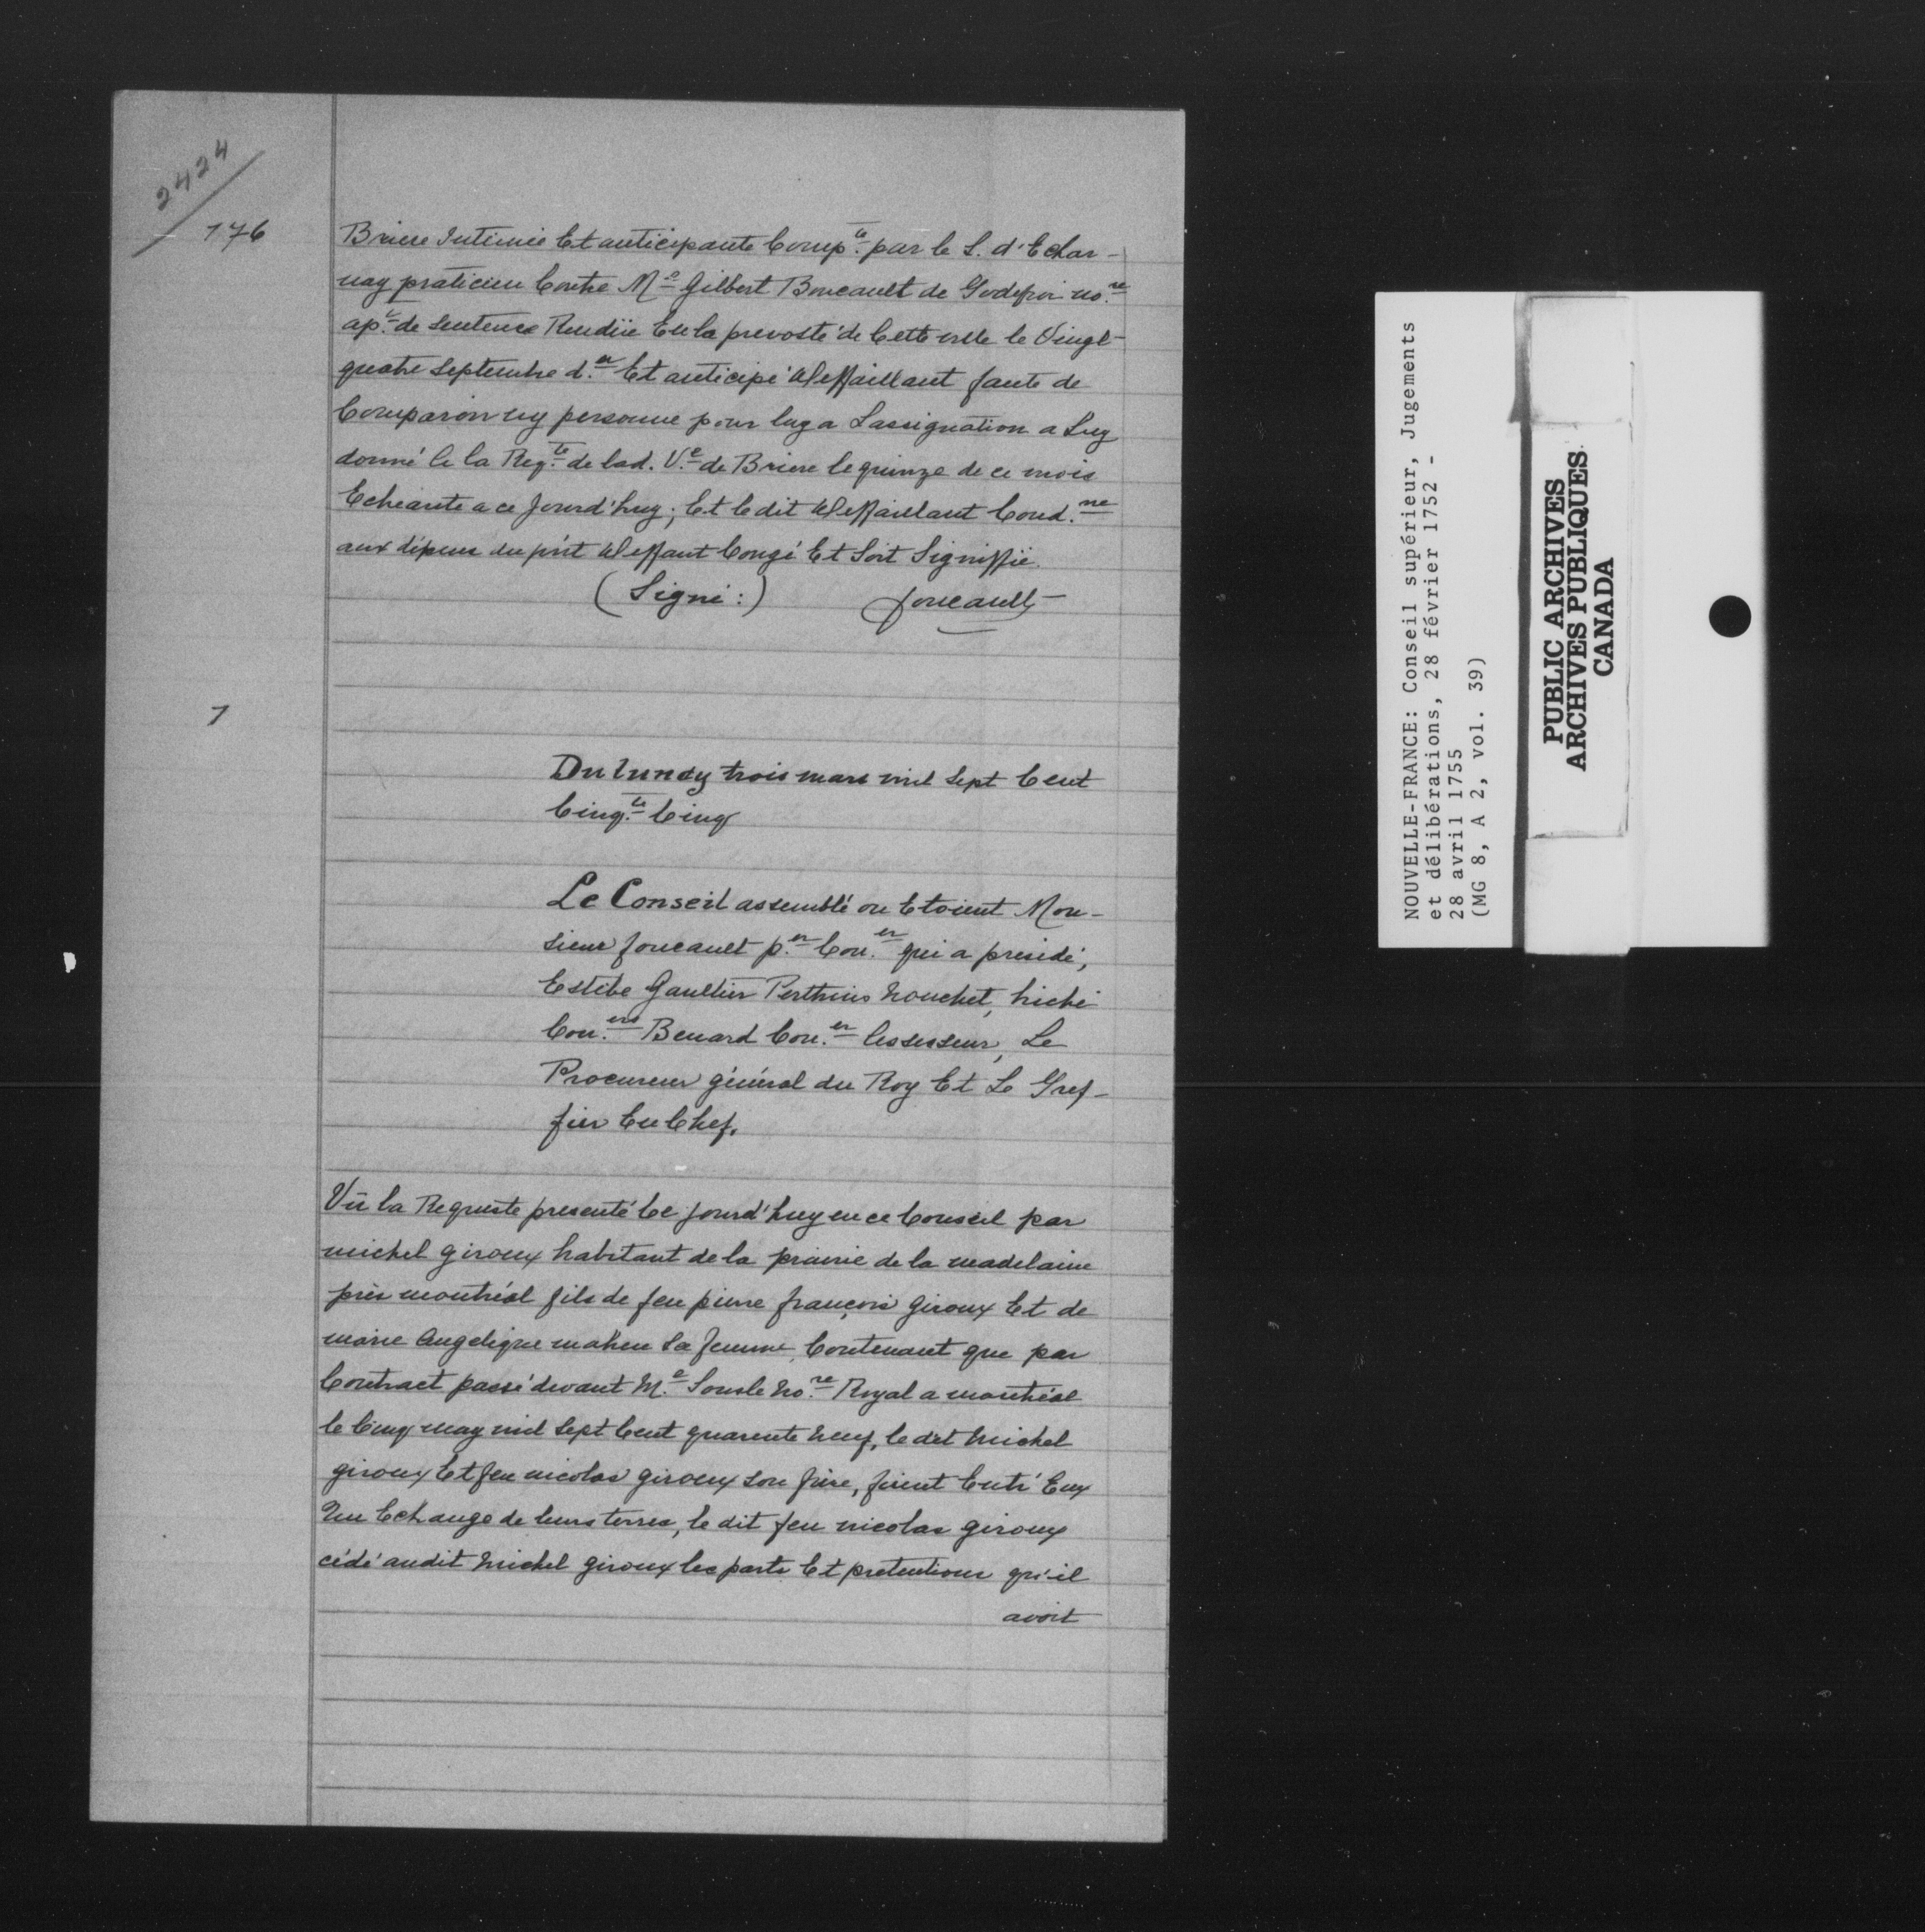 2424
176
Briere Intimée Et anticipante Comp.te par le S. d'Echar-
nay praticien Contre M.e Gilbert Boucault de Godefroi no.re
ap.t de Sentence Rendüe En la prevosté de Cette ville le Vingt-
quatre Septembre d.er Et anticipé deffaillant faute de
Comparoir ny personne pour luy a Lassignation a Luy
donné a la Req.te de lad. V.e de Briere le quinze de ce mois
Echeante a ce Jourd'huy; Et ledit deffaillant Cond.né
aux dépens du p'nt deffaut Congé Et Soit Signiffié.
(Signé:) foucault
1
Du lundy trois mars mil Sept Cent
Cinq.te Cinq
Le Conseil assemblé ou Etoient Mon-
sieur foucault p.er Con.er qui a presidé,
Estebe Gaultier Perthuis nouchet, hiché
Con.ers Benard Con.er assesseur, Le
Procureur général du Roy Et Le Gref-
fier En Chef.
Vû la Requeste presenté Ce jourd'huy en ce Conseil par
michel giroux habitant de la prairie de la madelaine
près montréal fils de feu pierre françois giroux Et de
marie angelique maheu Sa femme, Contenant que par
Contract passé devant M.e Souste no.re Royal a montréal
le Cinq may mil Sept Cent quarente neuf, le dit michel
giroux Et feu nicolas giroux son frère, firent Entr'Eux
Un Echange de leurs terres, le dit feu nicolas giroux
cédé audit michel giroux les parts Et pretentions qu'il
avoit
NOUVELLE-FRANCE: Conseil supérieur, Jugements
et délibérations, 28 février 1752 -
28 avril 1755
(MG 8, A 2, vol. 39)
PUBLIC ARCHIVES
ARCHIVES PUBLIQUES
CANADA